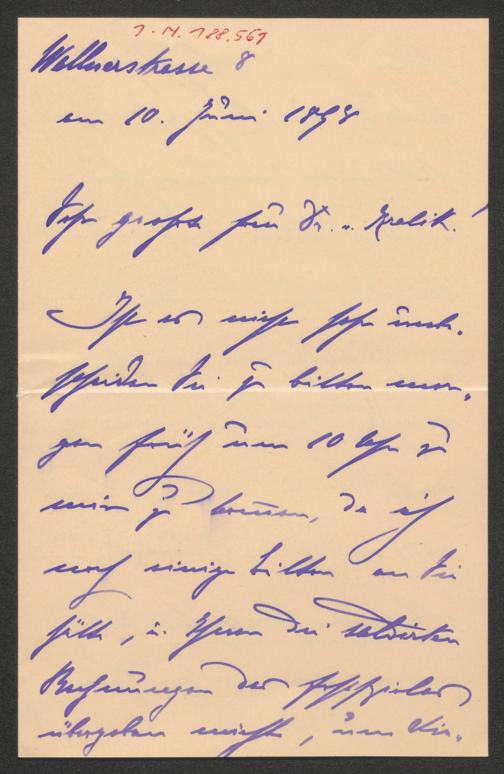 I. N. 188.561
Wollnerstrasse 8
am 10. Juni 1898
Sehr geehrter Dr. v. Kralik!
Ist es nicht sehr unbe-
scheiden Sie zu bitten mor-
gen früh um 10 Uhr zu
mir zu kommen, da ich
noch einige Bitten an Sie
hätte, u. Ihnen die
Rechnungen des
übergeben möchte, um